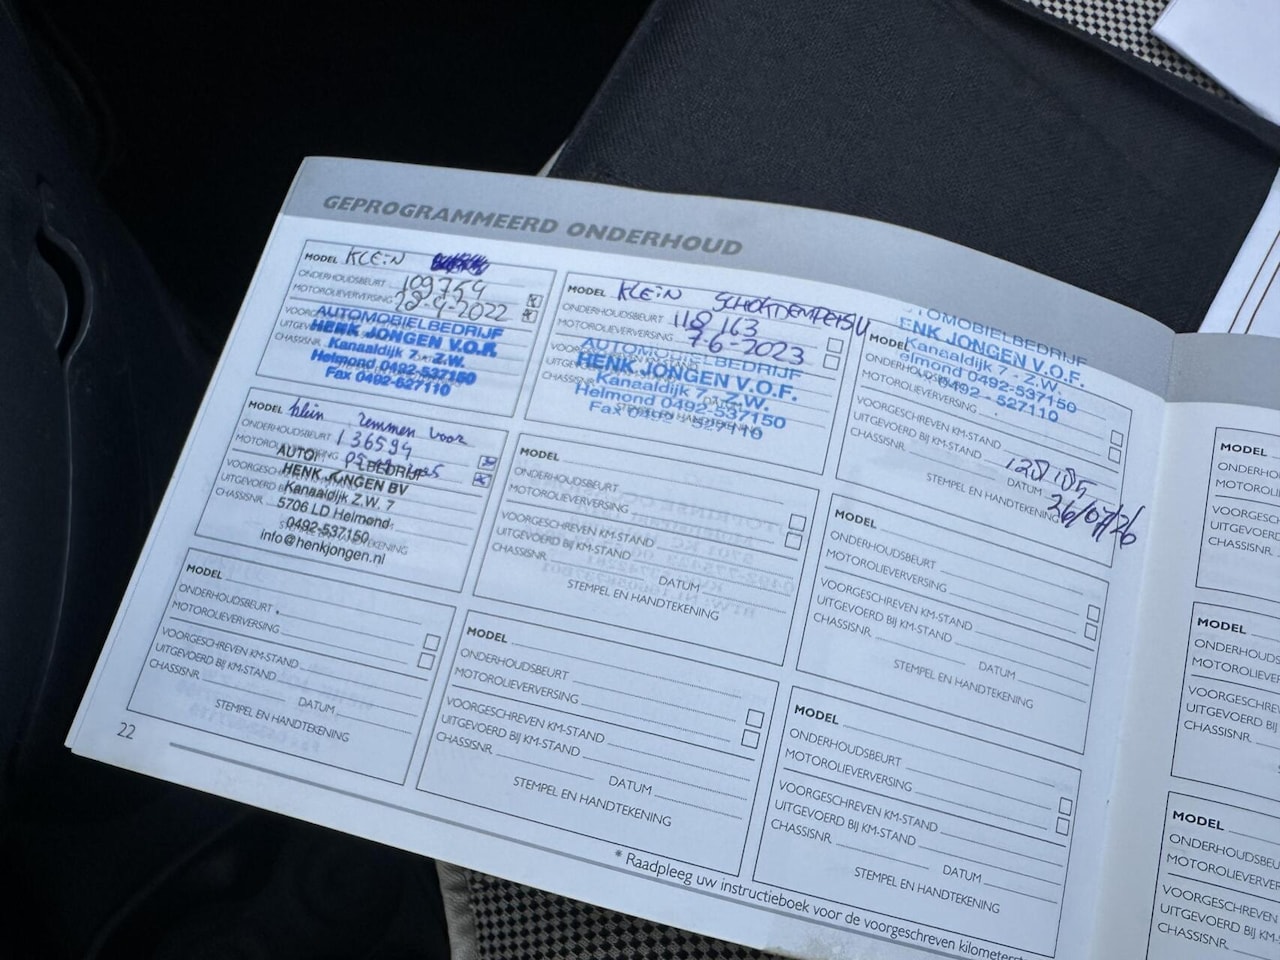 GEPROGRAMMEERD ONDERHOUD
MODEL KLEiN
ONDERHOUDSBEURT 109754
MOTOROLIEVERVERSING 28-4-2022
AUTOMOBIELBEDRIJF
HENK JONGEN V.O.F.
Kanaaldijk 7 - Z.W.
Helmond 0492-537150
Fax 0492-527110
MODEL KLEiN SCHOKDEMPERS
ONDERHOUDSBEURT 118163
MOTOROLIEVERVERSING 7-6-2023
AUTOMOBIELBEDRIJF
HENK JONGEN V.O.F.
Kanaaldijk 7 - Z.W.
Helmond 0492-537150
Fax 0492-527110
TOMOBIELBEDRIJF
ENK JONGEN V.O.F.
MODEL Kanaaldijk 7 - Z.W.
elmond 0492-537150
0492 - 527110
ONDERHOUDSBEURT
MOTOROLIEVERVERSING
VOORGESCHREVEN KM-STAND
UITGEVOERD BIJ KM-STAND 128185
CHASSISNR. DATUM 26/07/26
STEMPEL EN HANDTEKENING
MODEL klein remmen voor
ONDERHOUDSBEURT 136594
AUTO BEDRIJF
HENK JONGEN BV
Kanaaldijk Z.W. 7
5706 LD Helmond
0492-537150
info@henkjongen.nl
MODEL
ONDERHOUDSBEURT
MOTOROLIEVERVERSING
VOORGESCHREVEN KM-STAND
UITGEVOERD BIJ KM-STAND
CHASSISNR. DATUM
STEMPEL EN HANDTEKENING
MODEL
ONDERHOUDSBEURT
MOTOROLIEVERVERSING
VOORGESCHREVEN KM-STAND
UITGEVOERD BIJ KM-STAND
CHASSISNR. DATUM
STEMPEL EN HANDTEKENING
MODEL
ONDERHOUDSBEURT
MOTOROLIEVERVERSING
VOORGESCHREVEN KM-STAND
UITGEVOERD BIJ KM-STAND
CHASSISNR. DATUM
STEMPEL EN HANDTEKENING
MODEL
ONDERHOUDSBEURT
MOTOROLIEVERVERSING
VOORGESCHREVEN KM-STAND
UITGEVOERD BIJ KM-STAND
CHASSISNR. DATUM
STEMPEL EN HANDTEKENING
MODEL
ONDERHOUDSBEURT
MOTOROLIEVERVERSING
VOORGESCHREVEN KM-STAND
UITGEVOERD BIJ KM-STAND
CHASSISNR. DATUM
STEMPEL EN HANDTEKENING
22
* Raadpleeg uw instructieboek voor de voorgeschreven kilometerst
MODEL
ONDERHOUDSB
MOTOROLIEVE
VOORGESCHRE
UITGEVOERD
CHASSISNR.
MODEL
ONDERHOUDSB
MOTOROLIEVER
VOORGESCHREV
UITGEVOERD B
CHASSISNR.
MODEL
ONDERHOUDSBEU
MOTOROLIEVERV
VOORGESCHREVE
UITGEVOERD BI
CHASSISNR.